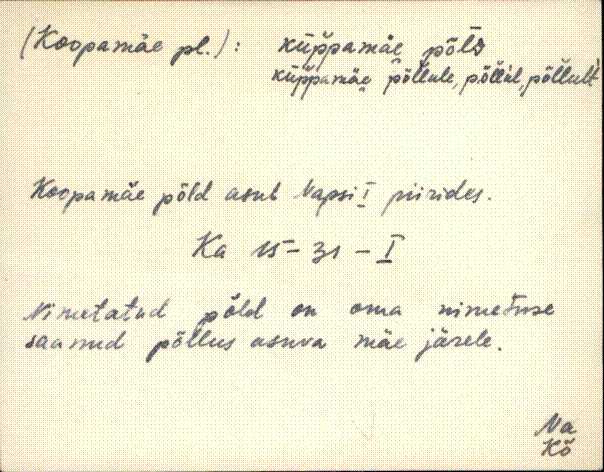 (Koopamäe pl.): küppamäe põld
küppamäe põllule, põllul, põllult
Koopamäe põld asub Napsi I piirides.
Ka 15-31-I
Nimetatud põld on oma nimetuse
saanud põllus asuva mäe järele.
Na
Kõ